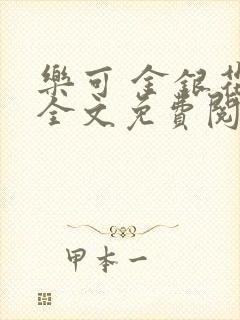 樂可 金銀花
全文免費閱
甲本一